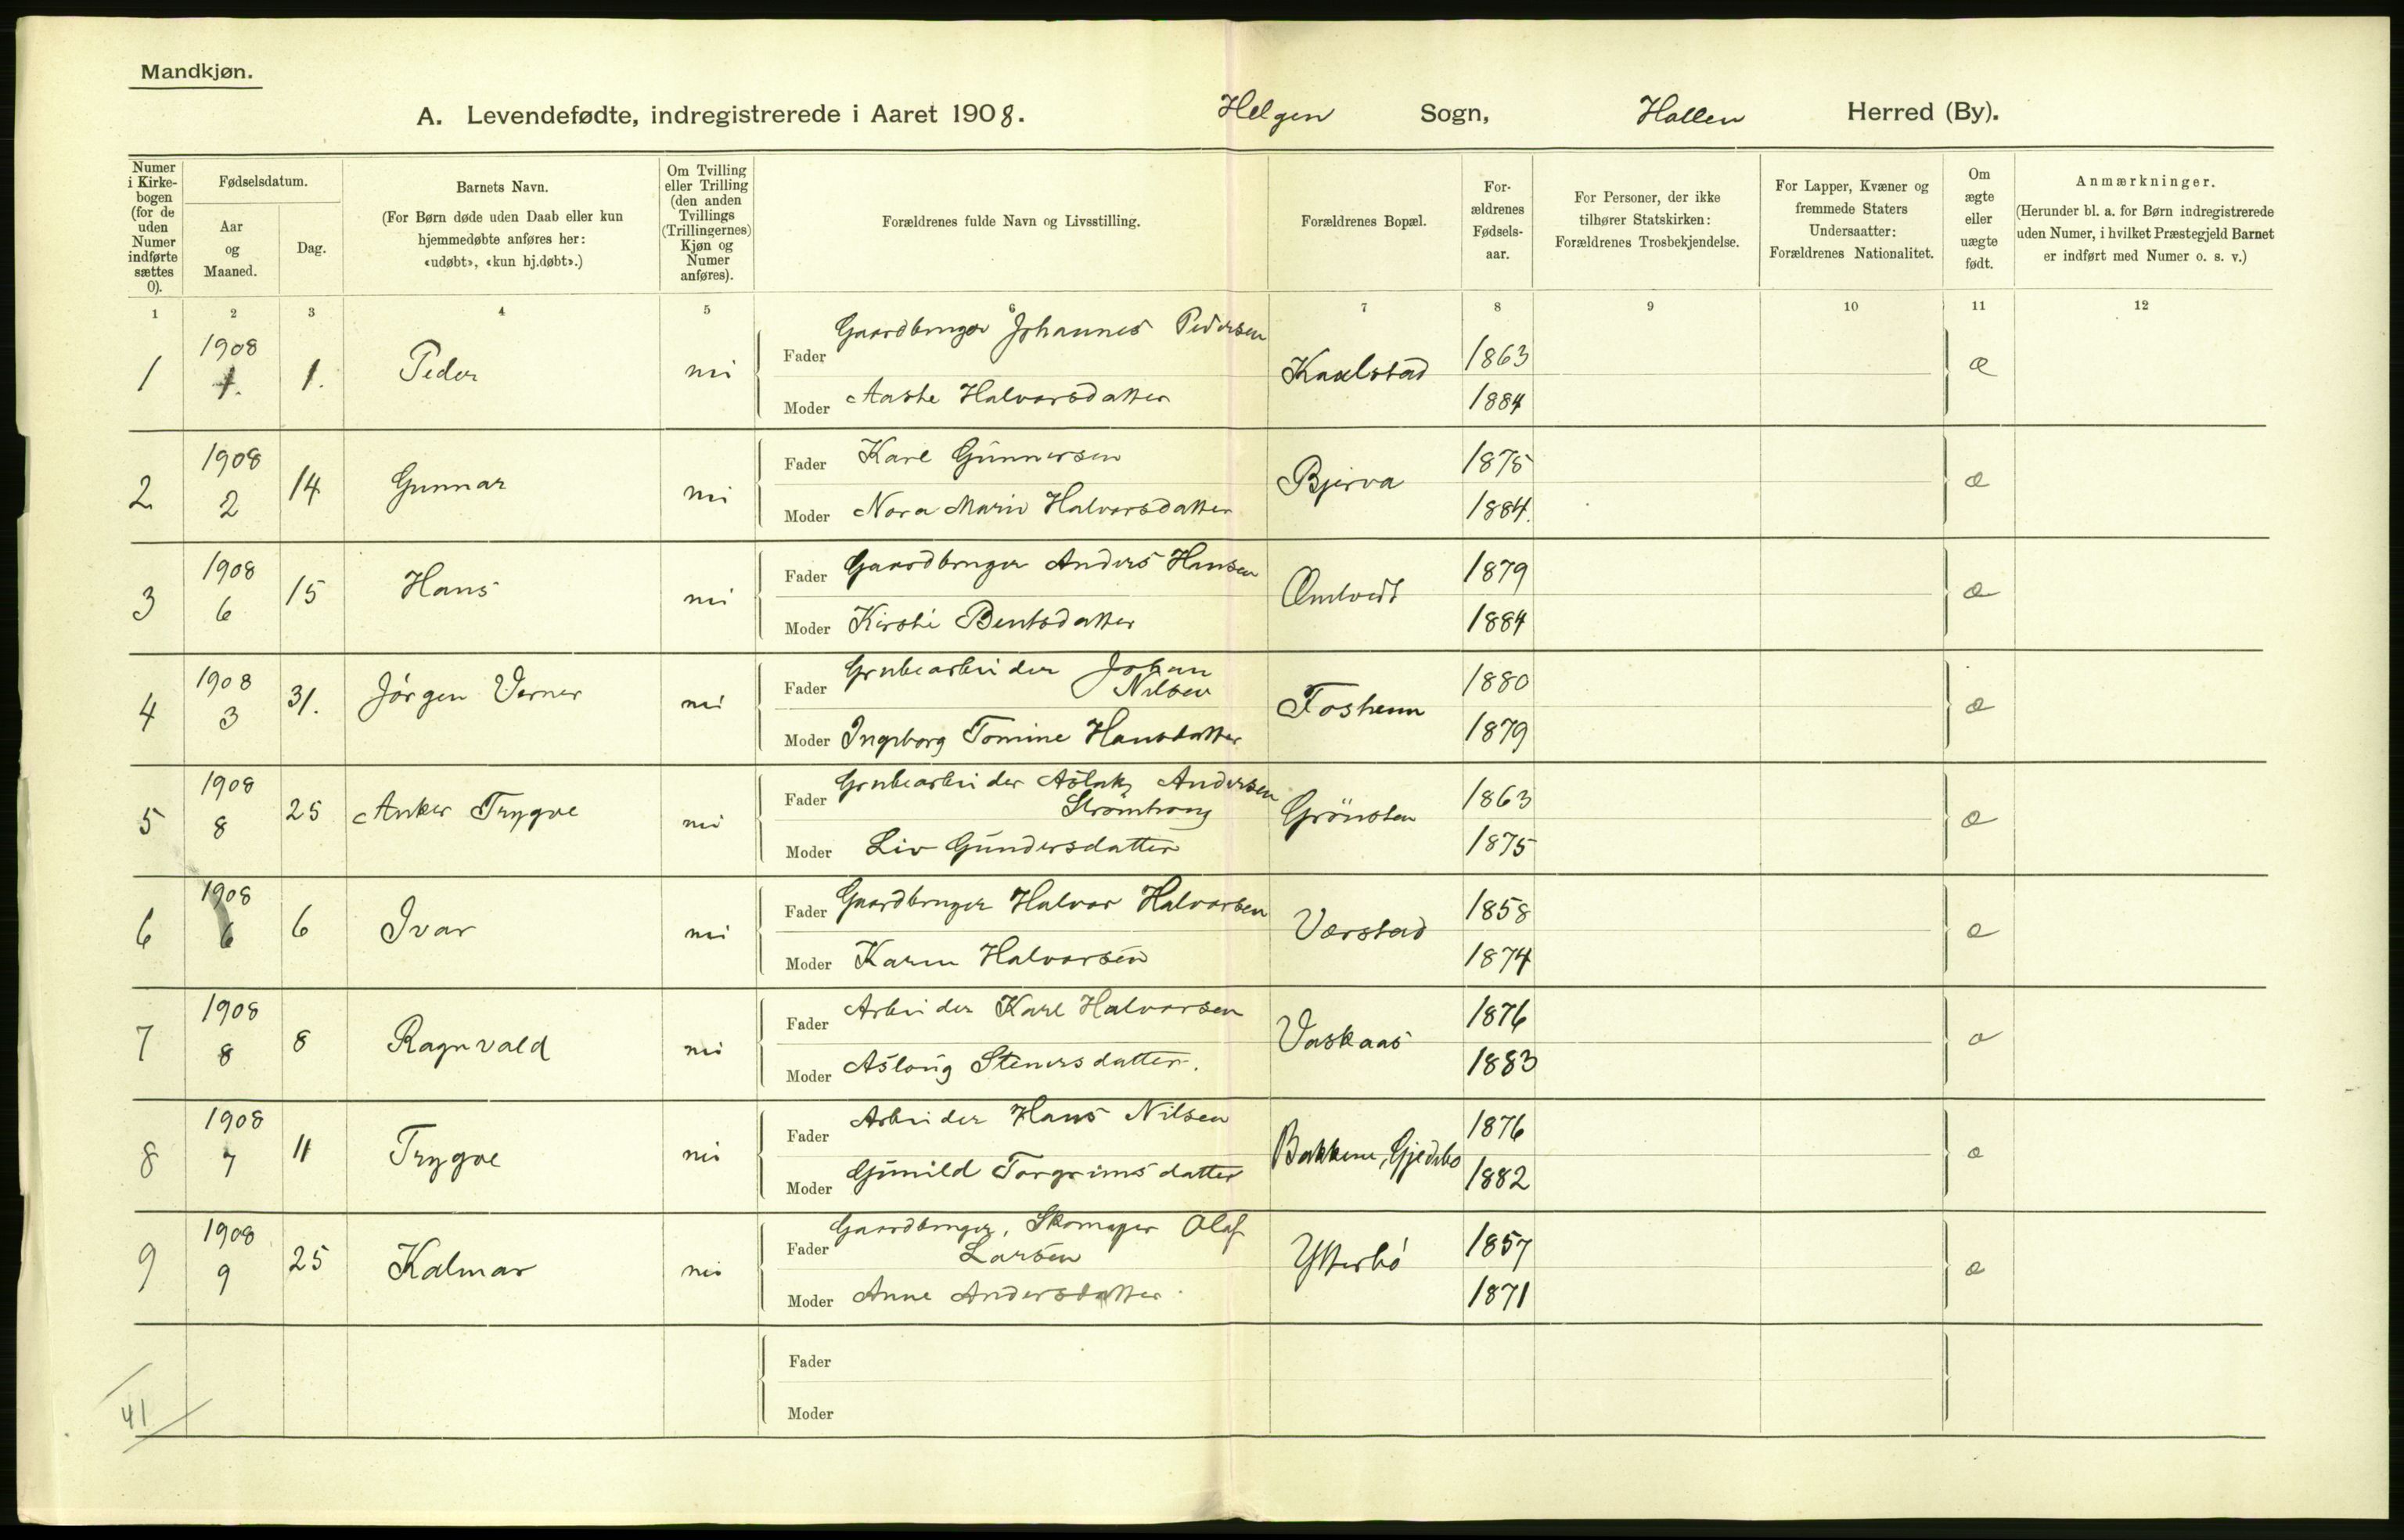 Mandkjøn.
A. Levendefødte, indregistrerede i Aaret 1908. Helgen Sogn, Hollen Herred (By).
Numer i Kirke-bogen (for de uden Numer indførte sættes 0).
Fødselsdatum.
Aar og Maaned.
Dag.
Barnets Navn.
(For Børn døde uden Daab eller kun hjemmedøbte anføres her: «udøbt», «kun hj.døbt».)
Om Tvilling eller Trilling (den anden Tvillings (Trillingernes) Kjøn og Numer anføres).
Forældrenes fulde Navn og Livsstilling.
Forældrenes Bopæl.
For-ældrenes Fødsels-aar.
For Personer, der ikke tilhører Statskirken: Forældrenes Trosbekjendelse.
For Lapper, Kvæner og fremmede Staters Undersaatter: Forældrenes Nationalitet.
Om ægte eller uægte født.
Anmærkninger.
(Herunder bl. a. for Børn indregistrerede uden Numer, i hvilket Præstegjeld Barnet er indført med Numer o. s. v.)
1 2 3 4 5 6 7 8 9 10 11 12
1 1908 1. 1. Peder nei Fader Gaardbruger Johannes Pedersen Kaalstad 1863 æ
Moder Aaste Halvorsdatter 1884
2 1908 2 14 Gunnar nei Fader Karl Gunnersen Bjerva 1875 æ
Moder Nora Marie Halvorsdatter 1884.
3 1908 6 15 Hans nei Fader Gaardbruger Anders Hansen Omtvedt 1879 æ
Moder Kirsti Bentsdatter 1884
4 1908 3 31. Jörgen Verner nei Fader Grubearbeider Johan
Nilsen 1880 æ
Moder Ingeborg Tomine Hansdatter 1879
5 1908 8 25 Anker Trygve nei Fader Grubearbeider Aslak Andersen
Grönsten 1863 æ
Moder Liv Gundersdatter 1875
6 1908 6 6 Ivar nei Fader Gaardbruger Halvor Halvorsen Værstad 1858 æ
Moder Karen Halvorsen 1874
7 1908 8 8 Ragnvald nei Fader Arbeider Karl Halvorsen Vaskaas 1876 æ
Moder Aslaug Stenersdatter. 1883
8 1908 7 11 Trygve nei Fader Arbeider Hans Nilsen Bakkene, Gjedebo 1876 æ
Moder Gunild Torgrimsdatter 1882
9 1908 9 25 Kalmar nei Fader Gaardbruger, Skomager Olaf
Larsen Ytterbö 1857 æ
Moder Anne Andersdatter 1871
Fader
Moder
41